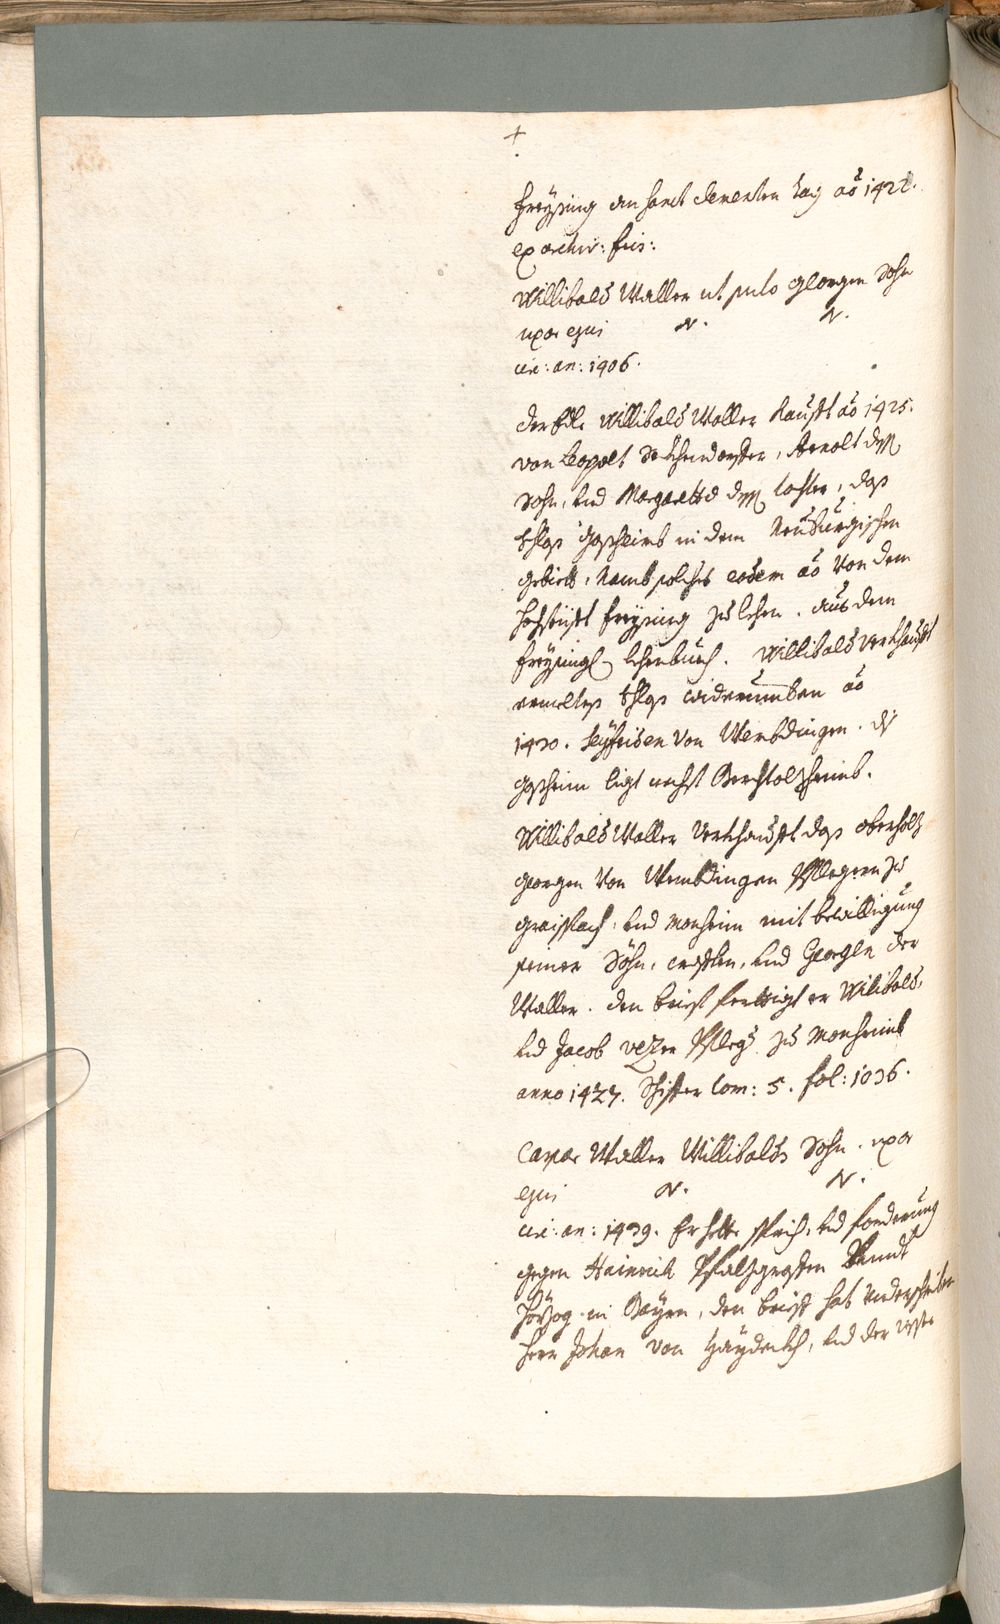 +
Freysing an sanct Clementen tag ao 1422.
ex archiv: fris:
Willibald Waller ut puto Georgen Sohn
uxor ejus N. N.
circ: an: 1406.
der Edle Willibald Waller Kaufft ao 1425.
von Leopolt Sekhendorffer, Arnolt dessen
Sohn, und Margaretha dessen tochter, das
schloss Gosheimb in dem Neuburgischen
gebieth, namb solches eodem ao von dem
Hochstüfft Freysing zu lehen. aus dem
Freysing lehenbuch. Willibald verkhaufft
ermeltes schloss widerumben ao
1430. Seyfriden von Wembdingen. dis
Gosheim ligt nechst Berchtolzheimb.
Willibald Waller verkhaufft das oberholz
Georgen von Wembdingen Pflegern zu
Graispach, und Monheim mit bewilligung
seiner Söhn, und Georgen der
Waller. den brieff ferttigt er Wilibald,
und Jacob Pflegs zu Monheimb
anno 1427. tom: 5. fol: 1036.
Caspar Waller Willibalds Sohn. uxor
ejus N. N.
circ: an: 1439. Er hette spruch, und forderung
gegen Hainrich Pfalzgraffen
Herzog in Bayrn, den brieff hat underschriben
Herr Johan von Haydekh, und der veste